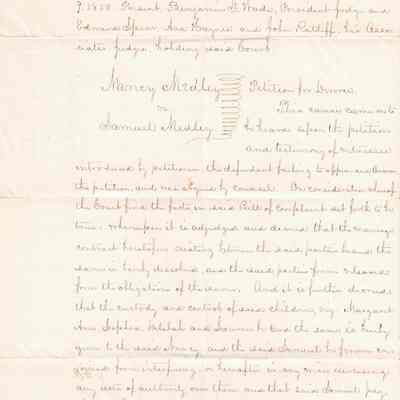 Present, Benjamin F. Wade, President judge and
Edward Spear, Asa Haynes and John Ratliff, his Asso-
ciate judges holding said Court
Nancy Medley
vs
Samuel Medley
Petition for Divorce
This cause came on to
be heard upon the petition
and testimony of witnesses
introduced by petitioner the defendant failing to appear answer
the petition, and was argued by counsel. On consideration whereof
the Court find the facts in said Bill of complaint set forth to be
true: whereupon it is adjudged and decreed that the marriage
contract heretofore existing between the said parties be and the
same is hereby dissolved, and the said parties from released
from the obligations of the same. And it is further decreed
that the custody and control of said children, viz. Margaret
Ann, Sophia and the same is hereby
given to the said Nancy and the said Samuel be
from interfering or hereafter in any wise exercising
any acts of authority over them and that said Samuel pay